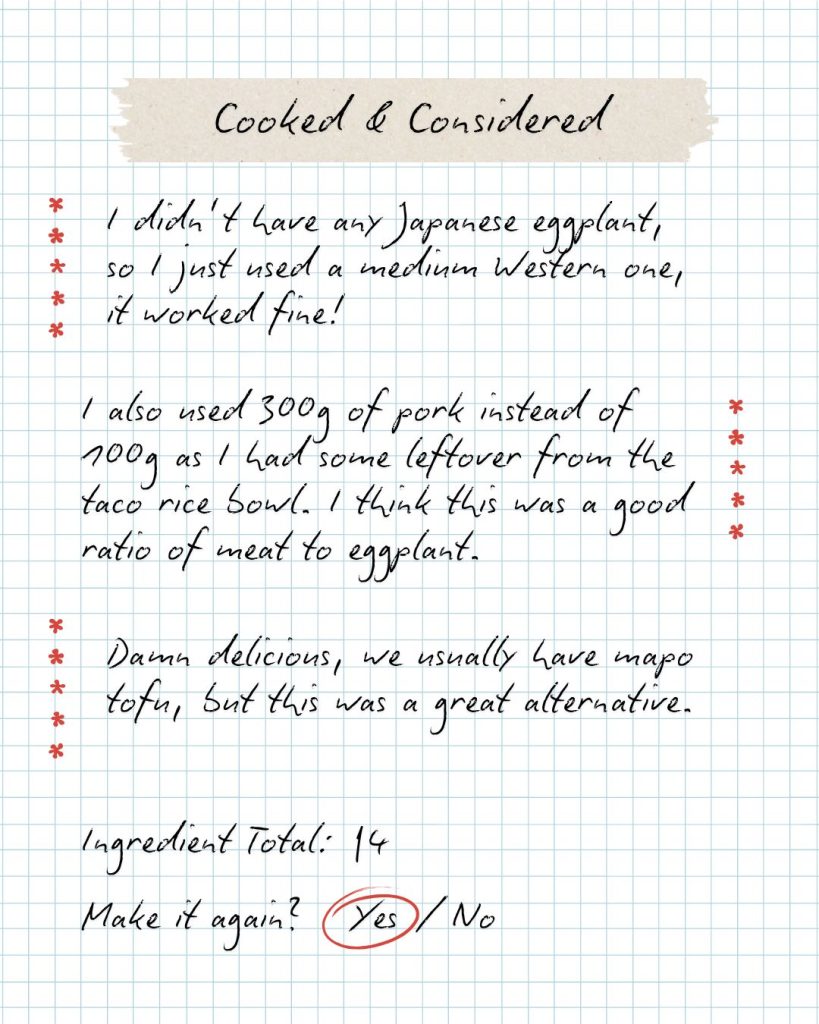 Cooked & Considered
I didn't have any Japanese eggplant,
so I just used a medium Western one,
it worked fine!
I also used 300g of pork instead of
100g as I had some leftover from the
taco rice bowl. I think this was a good
ratio of meat to eggplant.
Damn delicious, we usually have mapo
tofu, but this was a great alternative.
Ingredient Total: 14
Make it again? Yes / No